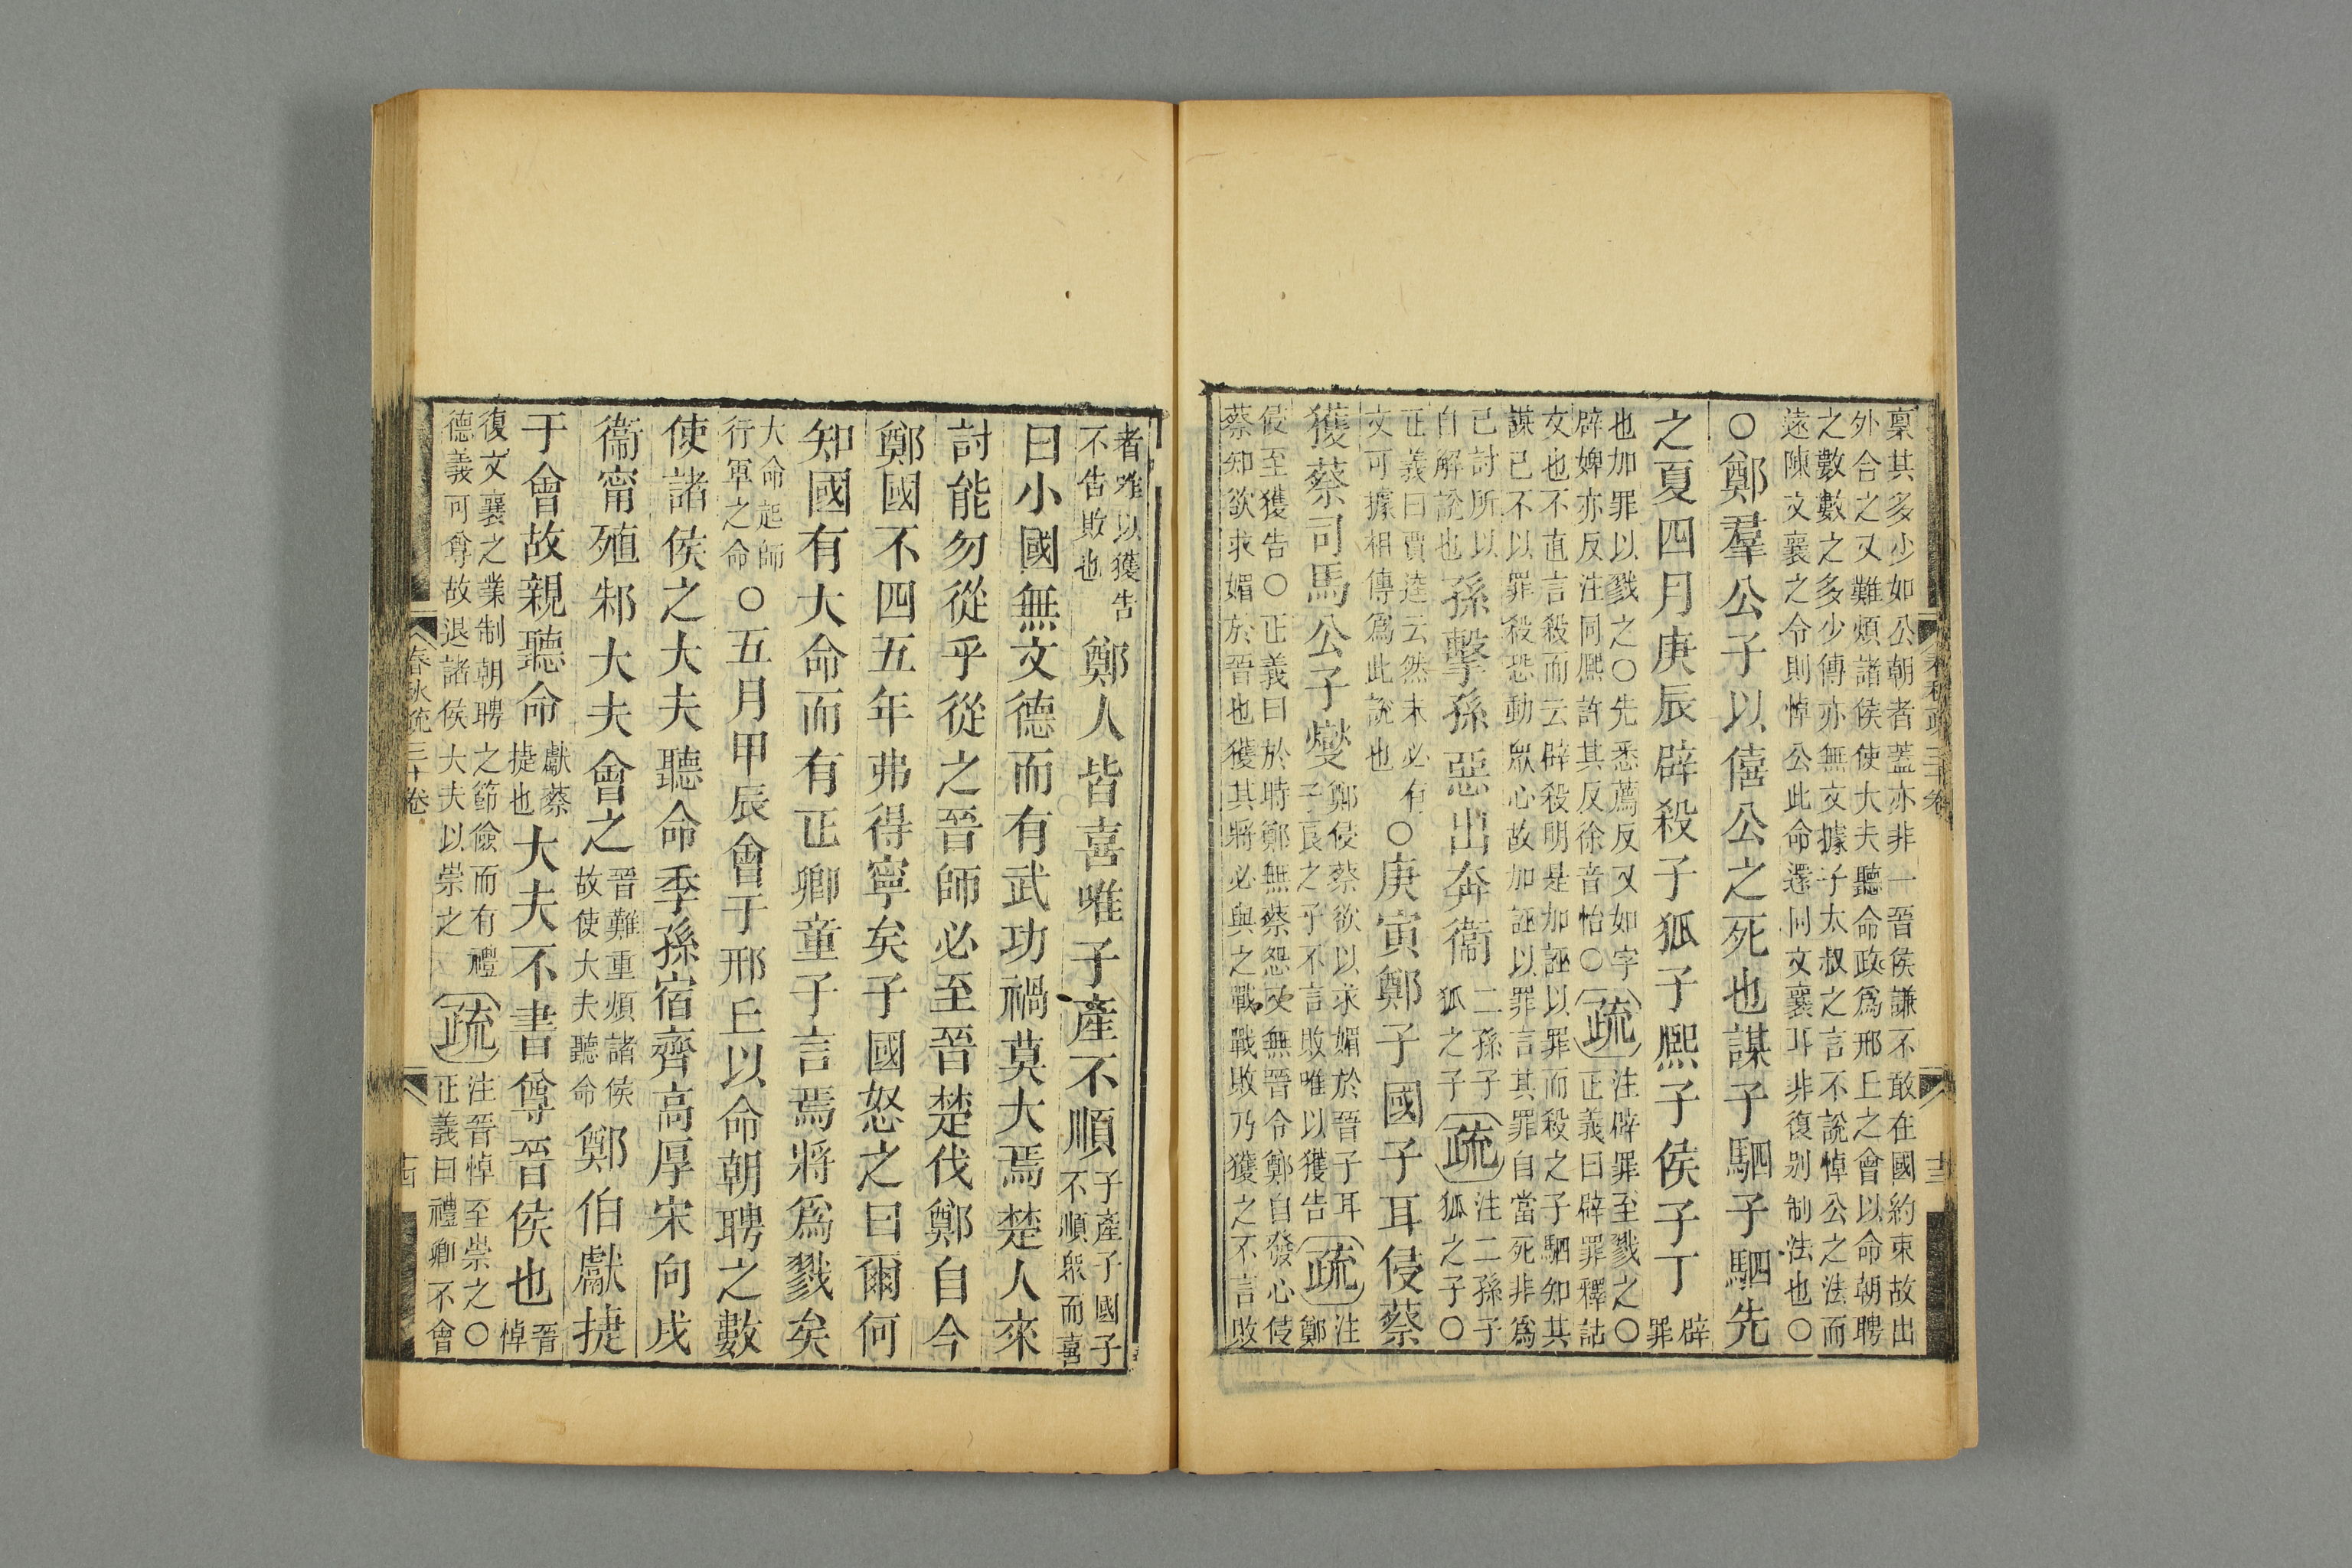 稟其多少如公朝者蓋亦非一晉侯謙不敢在國約束故出
外合之又難煩諸侯使大夫聽命政爲邢丘之會以命朝聘
之數數之多少傳亦無文據子太叔之言不說悼公之法而
遠陳文襄之令則悼公此命還同文襄耳非復別制法也○
○鄭羣公子以僖公之死也謀子駟子駟先
之夏四月庚辰辟殺子狐子熙子侯子丁辟
罪
也加罪以戮之○先悉薦反又如字疏注辟罪至戮之○
辟婢亦反注同熙許其反徐音怡○正義曰辟罪釋詁
文也不直言殺而云辟殺明是加誣以罪而殺之子駟知其
謀已不以罪殺恐動眾心故加誣以罪言其罪自當死非爲
已討所以
自解說也孫擊孫惡出奔衛二孫子
狐之子疏注二孫子
狐之子○
正義曰賈逵云然未必有
文可據相傳爲此說也○庚寅鄭子國子耳侵蔡
獲蔡司馬公子燮鄭侵蔡欲以求媚於晉子耳
子良之子不言敗唯以獲告疏注
鄭
侵至獲告○正義曰於時鄭無蔡怨又無晉令鄭自發心伎
蔡知欲求媚於晉也獲其將必與之戰戰敗乃獲之不言敗
春秋疏三十卷
十三
者唯以獲告
不告敗也鄭人皆喜唯子產不順子產子國子
不順眾而喜
曰小國無文德而有武功禍莫大焉楚人來
討能勿從乎從之晉師必至晉楚伐鄭自今
鄭國不四五年弗得寧矣子國怒之曰爾何
知國有大命而有正卿童子言焉將爲戮矣
大命起師
行軍之命○五月甲辰會于邢丘以命朝聘之數
使諸侯之大夫聽命季孫宿齊高厚宋向戌
衞甯殖邾大夫會之晉難重煩諸侯
故使大夫聽命鄭伯獻捷
于會故親聽命獻蔡
捷也大夫不書尊晉侯也晉
悼
復文襄之業制朝聘之節儉而有禮
德義可尊故退諸侯大夫以崇之疏注晉悼至崇之○
正義曰禮卿不會
春秋疏三十卷
十四